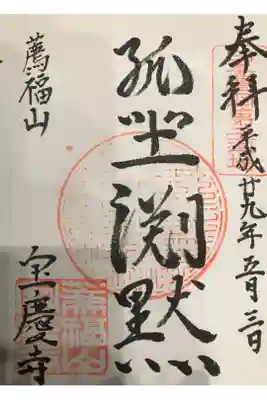 奉拝 平成廿九年五月三日
孤坐渕黙
薦福山
宝慶寺